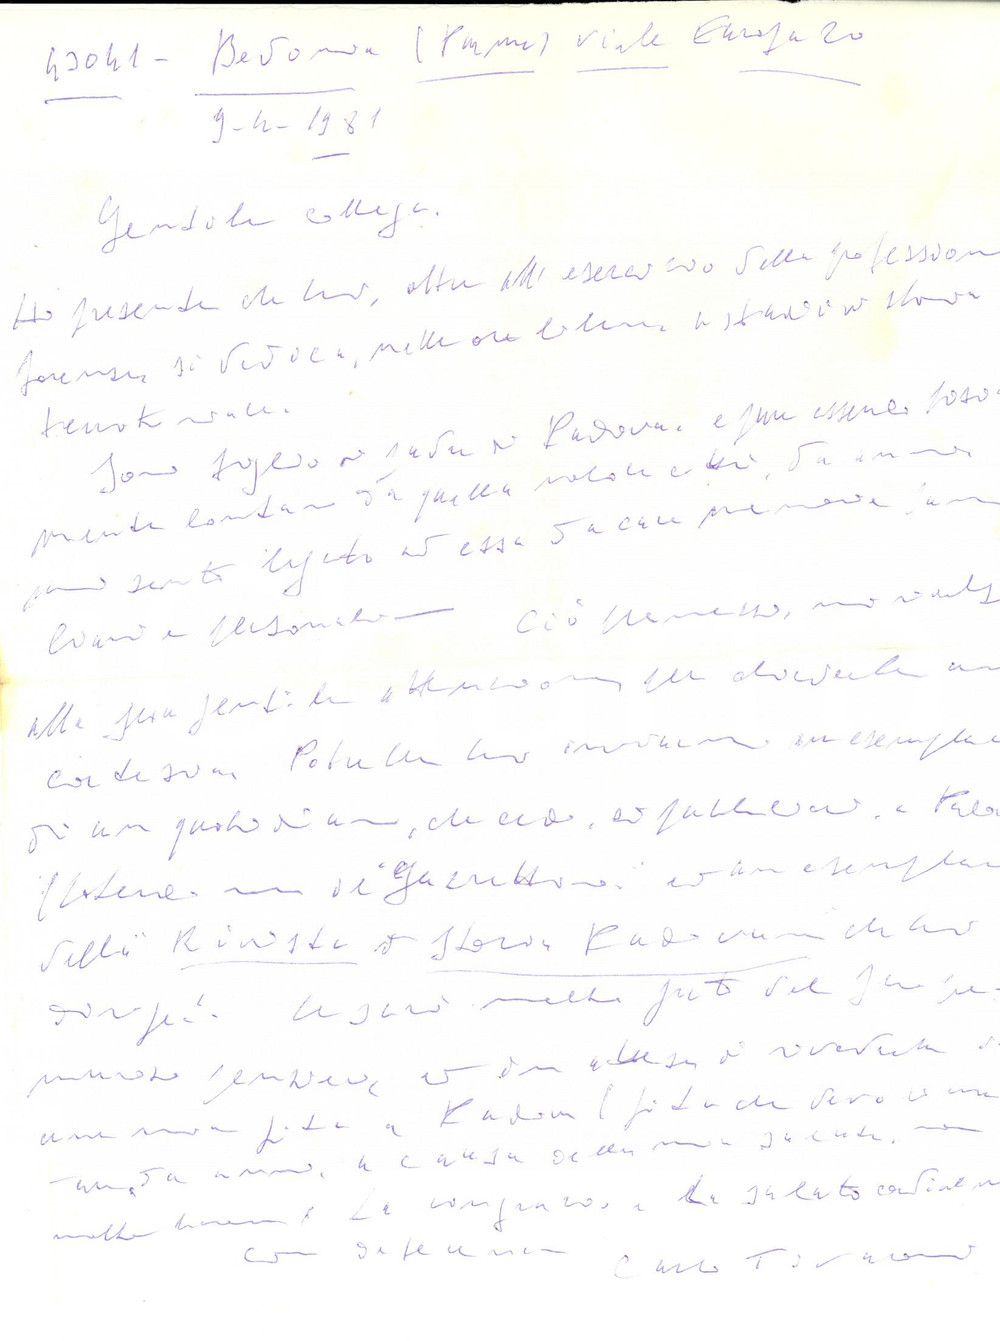 43041 - Bedonia (Parma) viale Europa 20
9-4-1981
Gentile collega.
Ho presente che Lei, oltre all'esercizio della professione
forense, si dedica, nelle ore libere, a studi di storia
territoriale.
Sono figlio di padre di Padova. e pur essendo
mente lontano da quella nobile città, da anni
sento legato ad essa da care memorie fami
liari e personali — Ciò premesso, mi rivolgo
alla sua gentile attenzione, per chiederle una
cortesia. Potrebbe Lei inviarmi un esemplare
di un quotidiano, che credo, si pubblichi, a Padova
ed un esemplare
della Rivista di Storia Padovana che Lei
dirige. Le sarò molto grato del suo pre-
muroso pensiero, ed in attesa di rivederla in
una mia gita a Padova (gita che devo
anno, a causa della mia salute, non
molto buona) La ringrazio, e La saluto
con deferenza Carlo